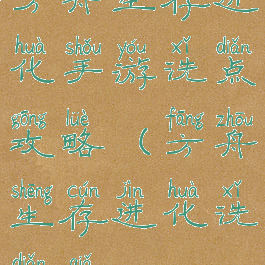 方舟生存进
huà shǒu yóu xǐ diǎn
化手游洗点
gōng lüè fāng zhōu
攻略（方舟
shēng cún jìn huà xǐ
生存进化洗
diǎn gōng